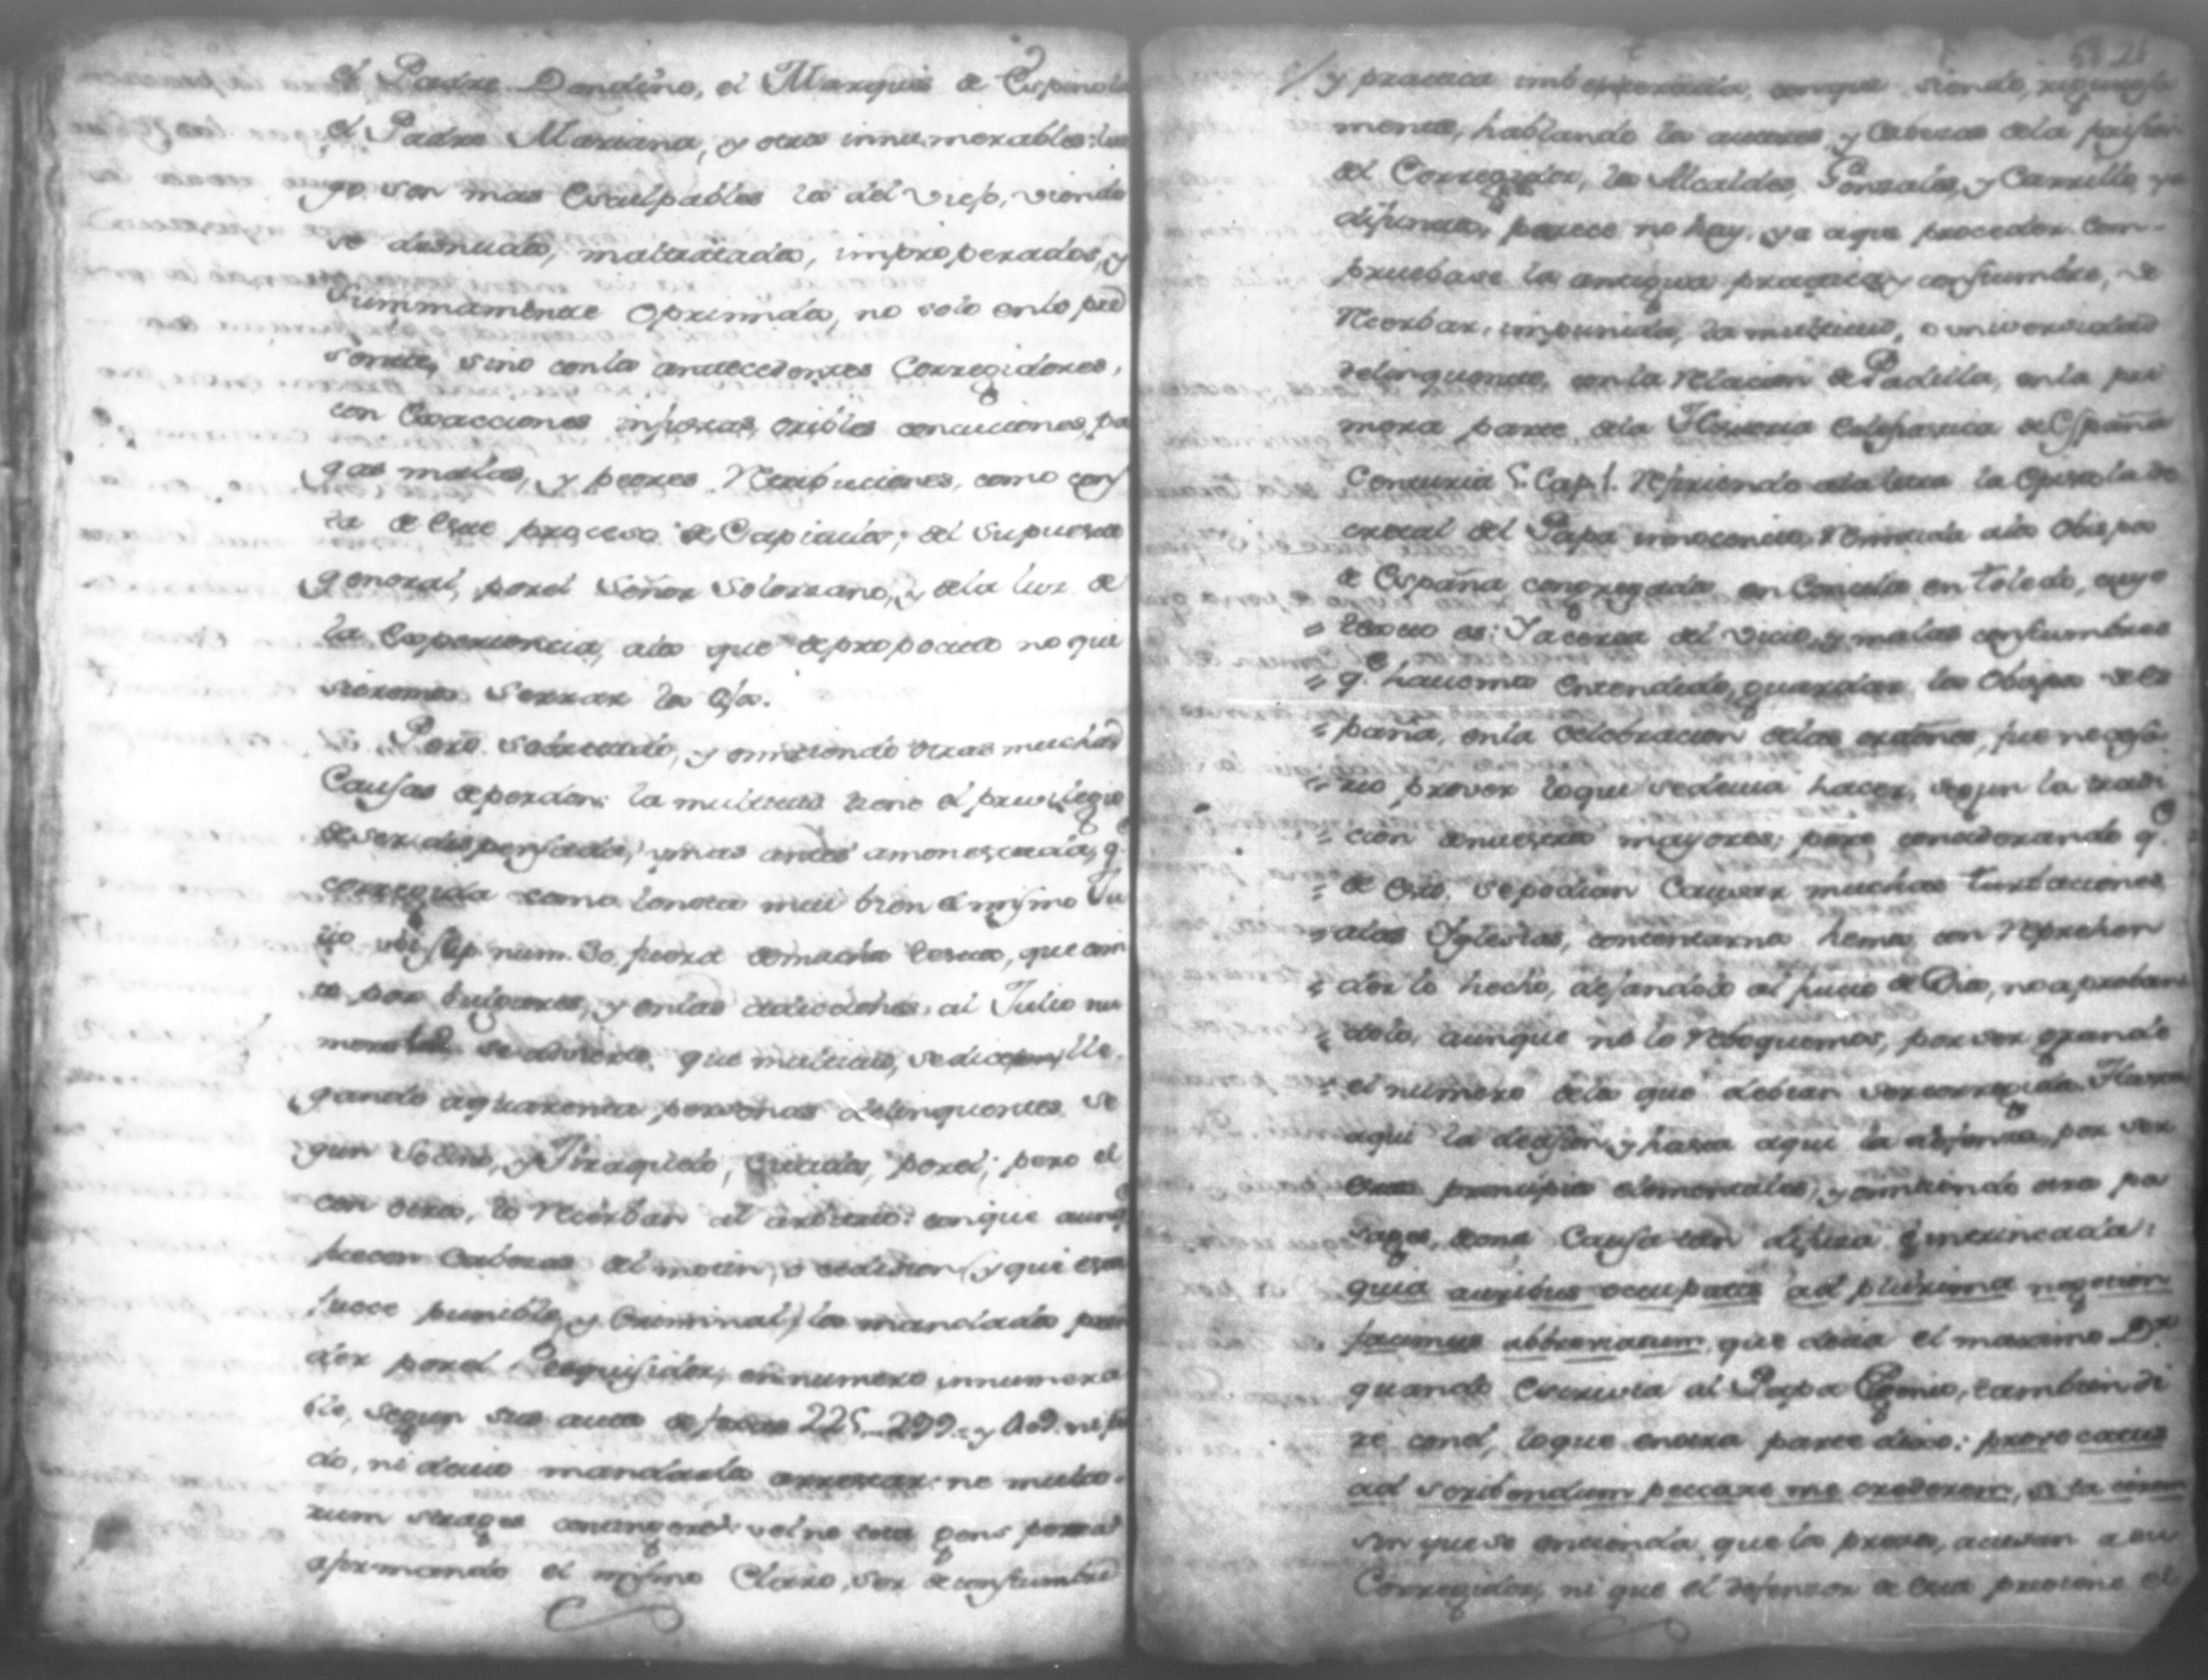 el Padre Dandino, el Marques de Espinola
el Padre Mariana, y otros innumerables: lue
go son mas Exculpables los del Viejo, viendo
se desnudos, maltratados, improperados, y
summamente oprimidos, no solo en lo pre
sente, sino con los antecedentes Corregidores,
con Exacciones injustas, oribles concuciones, pa
gas malas, y peores Retribuciones, como cons
ta de Este proceso de Capitulos; del supuesto
general, por el Señor Solorzano, y de la luz de
la Experiencia, a los que de proposito no qui
sieremos Serrar los Ojos.
Pero sobre todo, y omitiendo otras muchas
Causas de perdon: la multitud tiene el privilegio
de ser dispensada, y mas antes amonestada, q.
corregida como lo nota mui bien el mismo Ju
lio ubi sup. num. 30. fuera de muchos textos, que ci
ta por vulgares, y en las addiciones, al Julio nu
mero se advierte, que multitud, se dice, lle
gando a quarenta personas delinquentes se
gun Socino, y Tiraquelo, citados, por el; pero el
con otros, lo Reserban al arbitrio: conque aunq
fuecen Cabezas del motin, o sedicion (y que esta
fuece punible, y Criminal) los mandados pren
der por el Pesquisidor, en numero innumera
ble, segun sus autos de foxas 225_299_ y
do, ni devio mandarlos arrestar: ne multo
rum strages contingeret: vel ne tota gens pereat
afirmando el mismo Claro, ser de constumbre
y practica imbeterada, conque siendo, rigurosa
mente, hablando los autores, y Cabezas de la pricion
del Corregidor, los Alcaldes, Gonzales, y Carrillo, ya
difuntos, parece no hay, ya a que proceder. Com-
pruebase la antigua practica, y constumbre, de
Reserbar, impunida, la multitud, o universidad
delinquente, con la Relacion de Padilla, en la pri
mera parte, de la Historia Eclesiastica de España
Centuria 5. Cap. 1. Refiriendo a la letra la Epistola de
cretal del Papa innocencio, Remitida a los Obispos
de España congregados en Concilio en Toledo, cuyo
texto es: Y acerca del Vicio, y malas constumbres
q.e havemos Entendido, guardar los Obispos de Es
paña, en la celebracion de las ordenes, fue necessa
rio prover lo que se devia hacer, segun la tradi
cion de nuestros mayores; pero considerando q.e
de Esto, se podian Causar muchas turbaciones
a las Yglesias, contentarnos hemos con Reprehen
der lo hecho, dejandolo al juicio de Dios, no aproban
dolo, aunque no lo Reboquemos, por ser grande
el numero de los que debian ser corregidos. Hasta
aqui la decision, y hasta aqui la defensa, por ser
Estos principios elementales, y omitiendo otros pa
sages, de una Causa tan difusa, é intrincada:
quia auribus occupatis ad plurima negotium
facimus abbreviatum que decia el maximo D.r
quando Escrivia al Papa Eugenio, tambien di
re con el, lo que en otra parte dixo: provocatus
ad scribendum peccare me crederem, si tacerem
sin que se entienda, que los presos, acusan a su
Corregidor, ni que el defensor de Estos preciene el